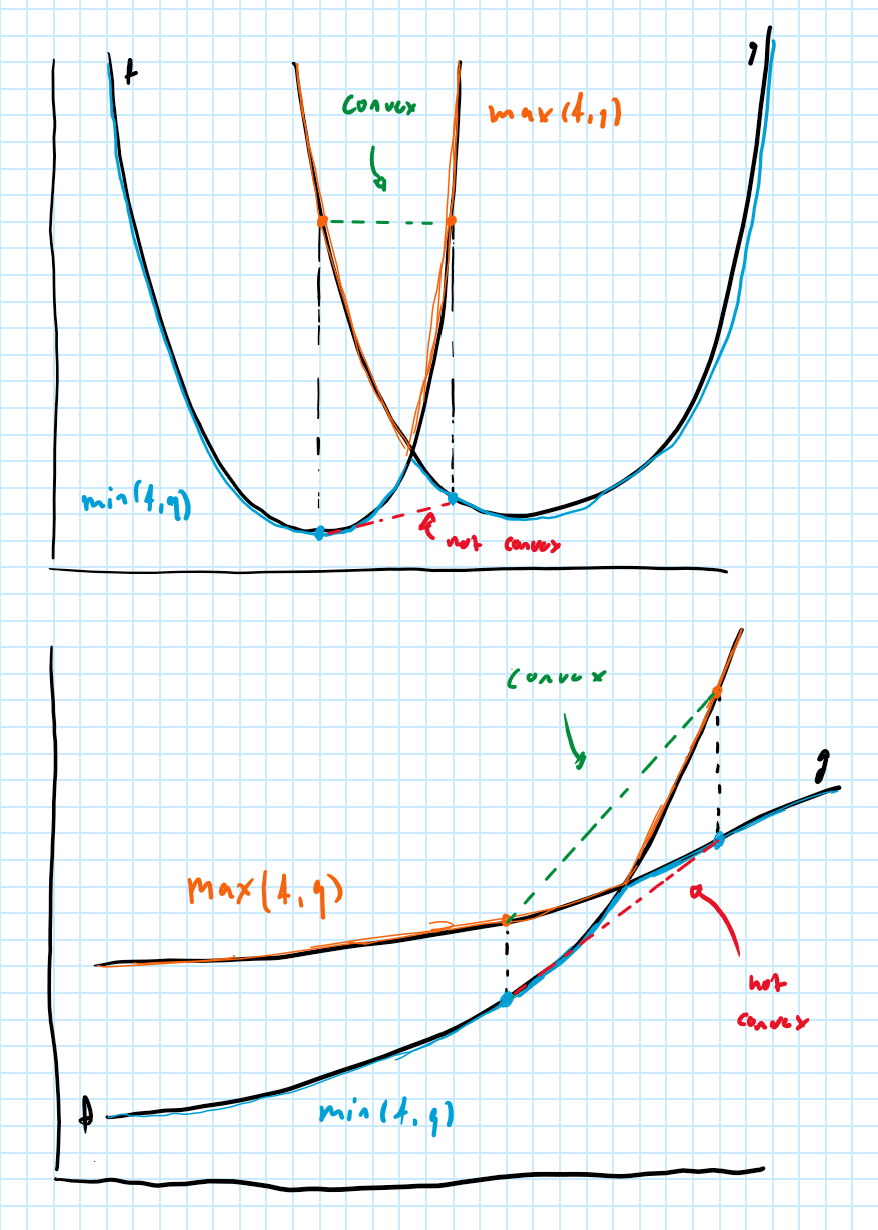 f
g
convex
max(f,g)
min(f,g)
not convex
convex
g
max(f,g)
not
convex
f
min(f,g)